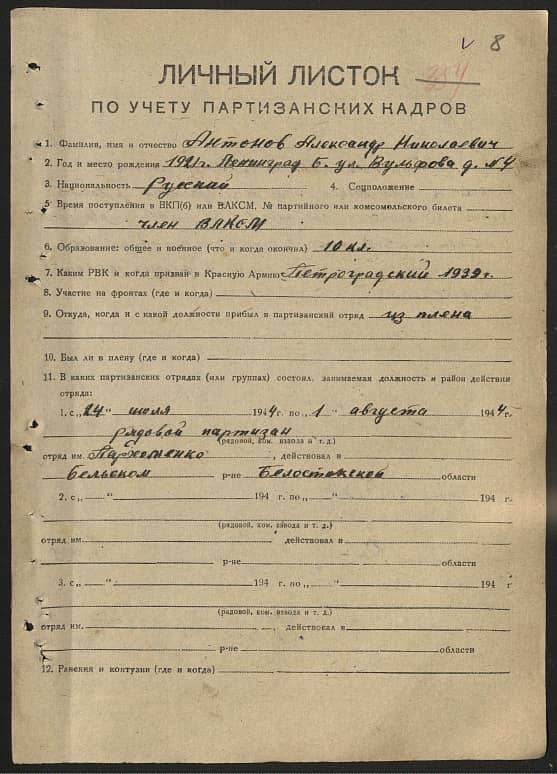 V 8
ЛИЧНЫЙ ЛИСТОК 254
ПО УЧЕТУ ПАРТИЗАНСКИХ КАДРОВ
1. Фамилия, имя и отчество Антонов Александр Николаевич
2. Год и место рождения 1921г. Ленинград Б. ул. Вульфова д. №4
3. Национальность Русский 4. Соцположение
5. Время поступления в ВКП(б) или ВЛКСМ, № партийного или комсомольского билета
член ВЛКСМ
6. Образование: общее и военное (что и когда окончил) 10 кл.
7. Каким РВК и когда призван в Красную Армию Петроградский 1939г.
8. Участие на фронтах (где и когда)
9. Откуда, когда и с какой должности прибыл в партизанский отряд из плена
10. Был ли в плену (где и когда)
11. В каких партизанских отрядах (или группах) состоял, занимаемая должность и район действия
отряда:
1. с „24" июля 1944г. по „1" августа 1944г.
рядовой партизан
(рядовой, ком. взвода и т. д.)
отряд им. Пархоменко, действовал в
Бельском р-не Белостокской области
2. с „ " 194 г. по „ " 194 г.
(рядовой, ком. взвода и т. д.)
отряд им. действовал в
р-не области
3. с „ " 194 г. по „ " 194 г
(рядовой, ком. взвода и т. д.)
отряд им. , действовал в
р-не области
12. Ранения и контузии (где и когда)